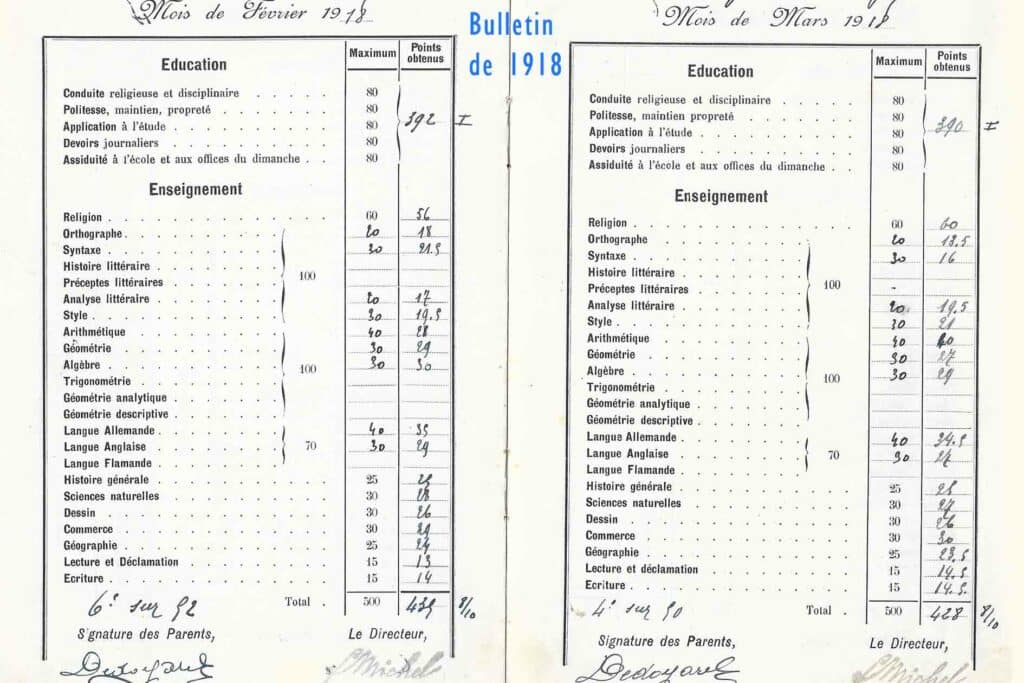 Bulletin
de 1918
Mois de Février 1918
Maximum Points obtenus
Education
Conduite religieuse et disciplinaire 80
Politesse, maintien, propreté 80
Application à l'étude 80 392 I
Devoirs journaliers 80
Assiduité à l'école et aux offices du dimanche 80
Enseignement
Religion 60 56
Orthographe 20 18
Syntaxe 30 21.5
Histoire littéraire
Préceptes littéraires 100
Analyse littéraire 20 17
Style 30 19.5
Arithmétique 40 28
Géométrie 30 29
Algèbre 30 30
Trigonométrie 100
Géométrie analytique
Géométrie descriptive
Langue Allemande 40 35
Langue Anglaise 30 29 70
Langue Flamande
Histoire générale 25
Sciences naturelles 30 28
Dessin 30 26
Commerce 30 29
Géographie 25 24
Lecture et Déclamation 15 13
Ecriture 15 14
6e sur 92 Total 500 439 8/10
Signature des Parents, Le Directeur,
Mois de Mars 1918
Maximum Points obtenus
Education
Conduite religieuse et disciplinaire 80
Politesse, maintien propreté 80
Application à l'étude 80 390 I
Devoirs journaliers 80
Assiduité à l'école et aux offices du dimanche 80
Enseignement
Religion 60 60
Orthographe 20
Syntaxe 30 16
Histoire littéraire
Préceptes littéraires 100
Analyse littéraire 20 19.5
Style 30 21
Arithmétique 40
Géométrie 30 27
Algèbre 30 29
Trigonométrie 100
Géométrie analytique
Géométrie descriptive
Langue Allemande 40 34.5
Langue Anglaise 30 27 70
Langue Flamande
Histoire générale 25
Sciences naturelles 30 27
Dessin 30 26
Commerce 30 30
Géographie 25 23.5
Lecture et déclamation 15 14.5
Ecriture 15 14.5
4e sur 90 Total 500 428 8/10
Signature des Parents, Le Directeur,